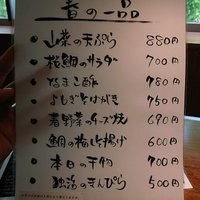 春の一品
・山菜の天ぷら 880円
・桜鯛のサラダ 700円
・なまこ酢 780円
・よもぎそばがき 750円
・春野菜のチーズ焼 690円
・鯛の梅しそ揚げ 600円
・本日の干物 700円
・独活のきんぴら 500円